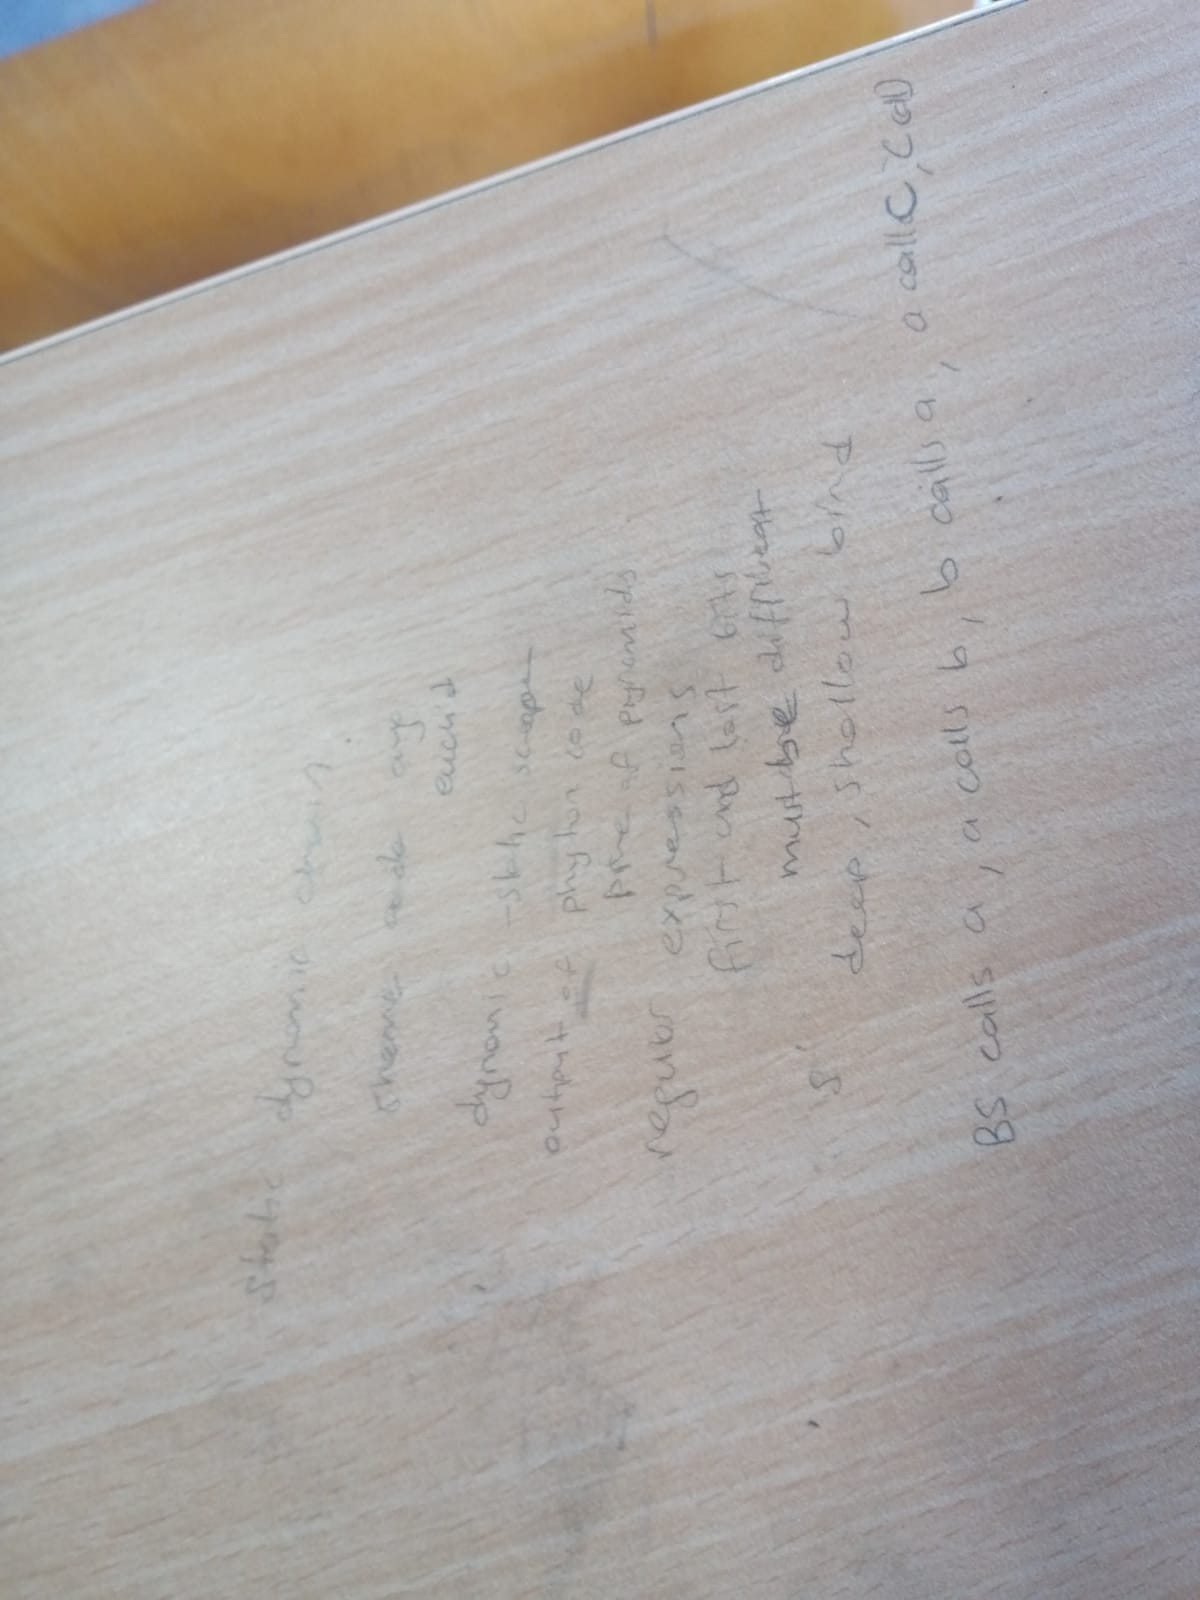 static dynamic chain
scheme code avg
euclid
dynamic - static scope
output of phyton code
pine of pyramids
regular expressions
first and last bits
must be different
deep, shallow bind
BS calls a, a calls b, b calls a, a calls C, C call D